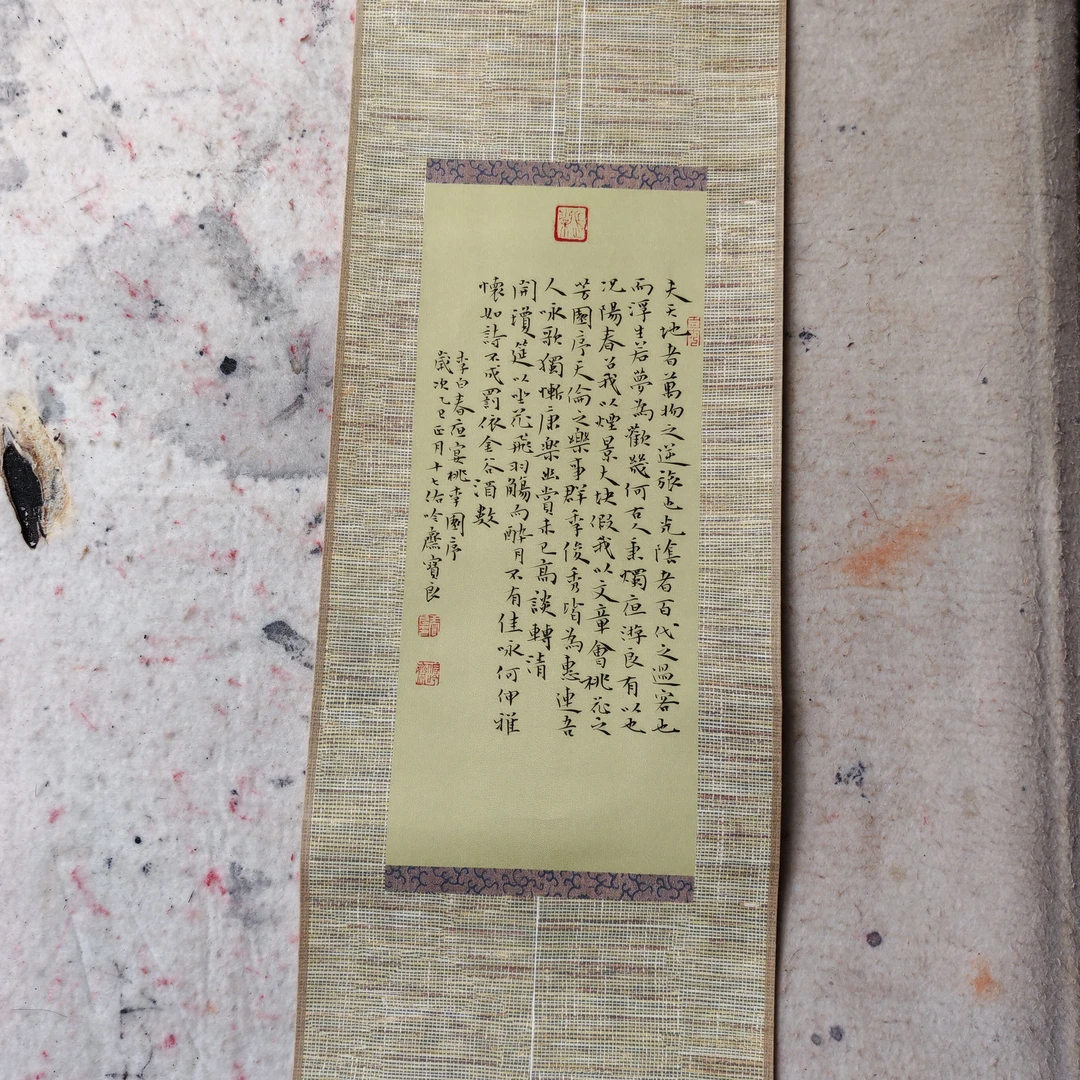 夫天地者萬物之逆旅也光陰者百代之過客也
而浮生若夢為歡幾何古人秉燭夜游良有以也
况陽春召我以煙景大塊假我以文章會桃花之
芳園序天倫之樂事群季俊秀皆為惠連吾
人咏歌獨慚康樂幽賞未已高談轉清
開瓊筵以坐花飛羽觴而醉月不有佳咏何伸雅
懷如詩不成罰依金谷酒數
李白春夜宴桃李園序
歲次乙巳正月十七於吟齋寶良